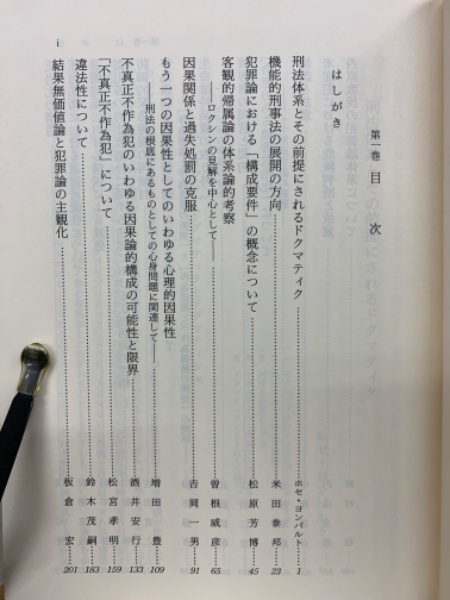 第一巻 目 次
はしがき
刑法体系とその前提にされるドクマティク……ホセ・ヨンパルト 1
機能的刑事法の展開の方向……米田泰邦 23
犯罪論における「構成要件」の概念について……松原芳博 45
客観的帰属論の体系論的考察
――ロクシンの見解を中心として――……曽根威彦 65
因果関係と過失処罰の克服……吉岡一男 91
もう一つの因果性としてのいわゆる心理的因果性
――刑法の根底にあるものとしての心身問題に関連して――……増田豊 109
不真正不作為犯のいわゆる因果論的構成の可能性と限界……酒井安行 133
「不真正不作為犯」について……松宮孝明 159
違法性について……鈴木茂嗣 183
結果無価値論と犯罪論の主観化……板倉宏 201
i